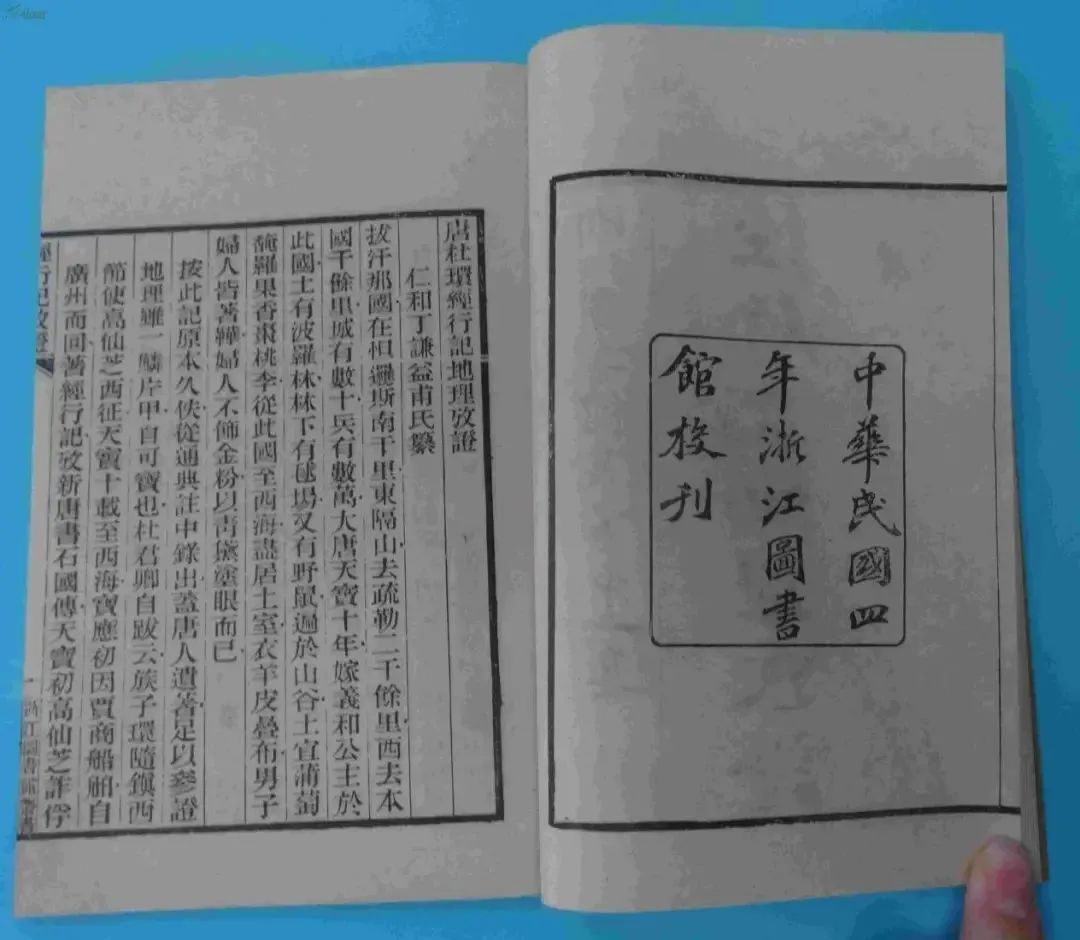 中華民國四
年浙江圖書
館校刊
唐杜環經行記地理攷證
仁和丁謙益甫氏纂
拔汗那國在怛邏斯南千里東隔山去疏勒二千餘里西去本
國千餘里城有數十兵有數萬大唐天寶十年嫁義和公主於
此國土有波羅林林下有毬場又有野鼠遍於山谷土宜蒲萄
馣羅果香棗桃李從此國至西海盡居土室衣羊皮疊布男子
婦人皆著鞾婦人不飾金粉以青黛塗眼而已
按此記原本久佚從通典註中錄出蓋唐人遺著足以參證
地理雖一鱗片甲自可寶也杜君卿自跋云族子環隨鎮西
節使高仙芝西征天寶十載至西海寶應初因賈商船舶自
廣州而回著經行記攷新唐書石國傳天寶初高仙芝詐俘
經行記攷證
一